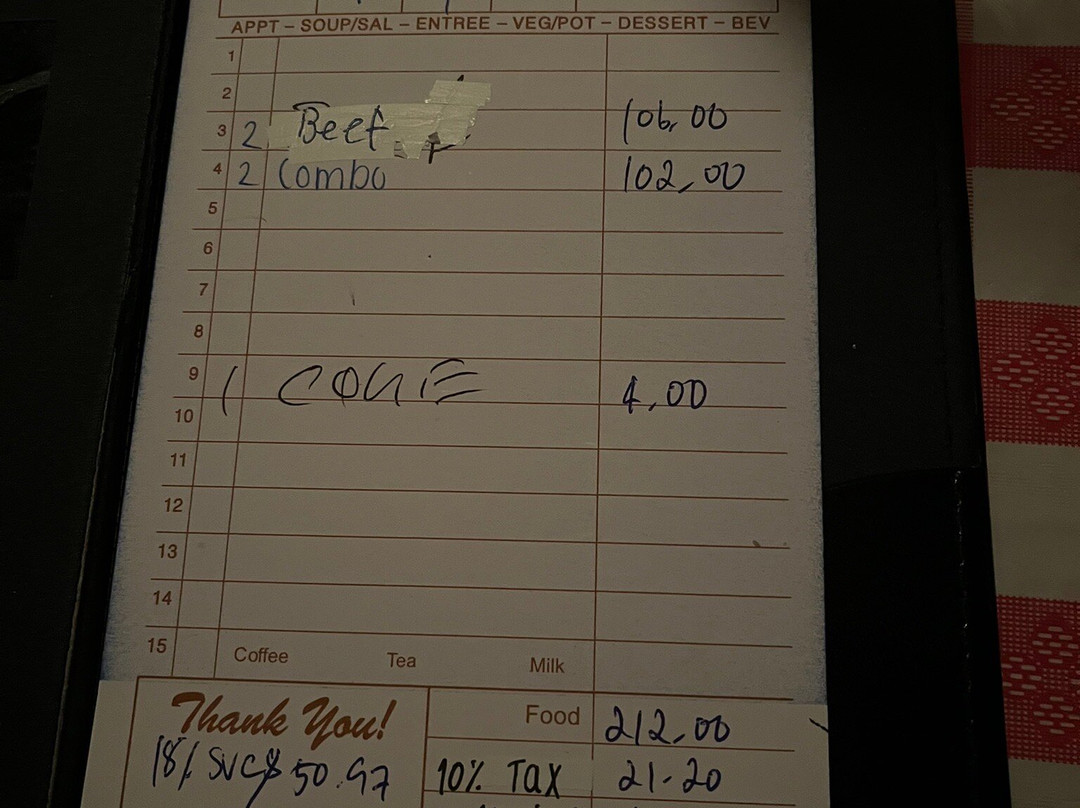 APPT – SOUP/SAL – ENTREE – VEG/POT – DESSERT – BEV
1
2
3 2 Beef 106.00
4 2 Combo 102.00
5
6
7
8
9 1 COKE 4.00
10
11
12
13
14
15 Coffee Tea Milk
Thank You! Food 212.00
18% SVC $ 50.97 10% TAX 21.20